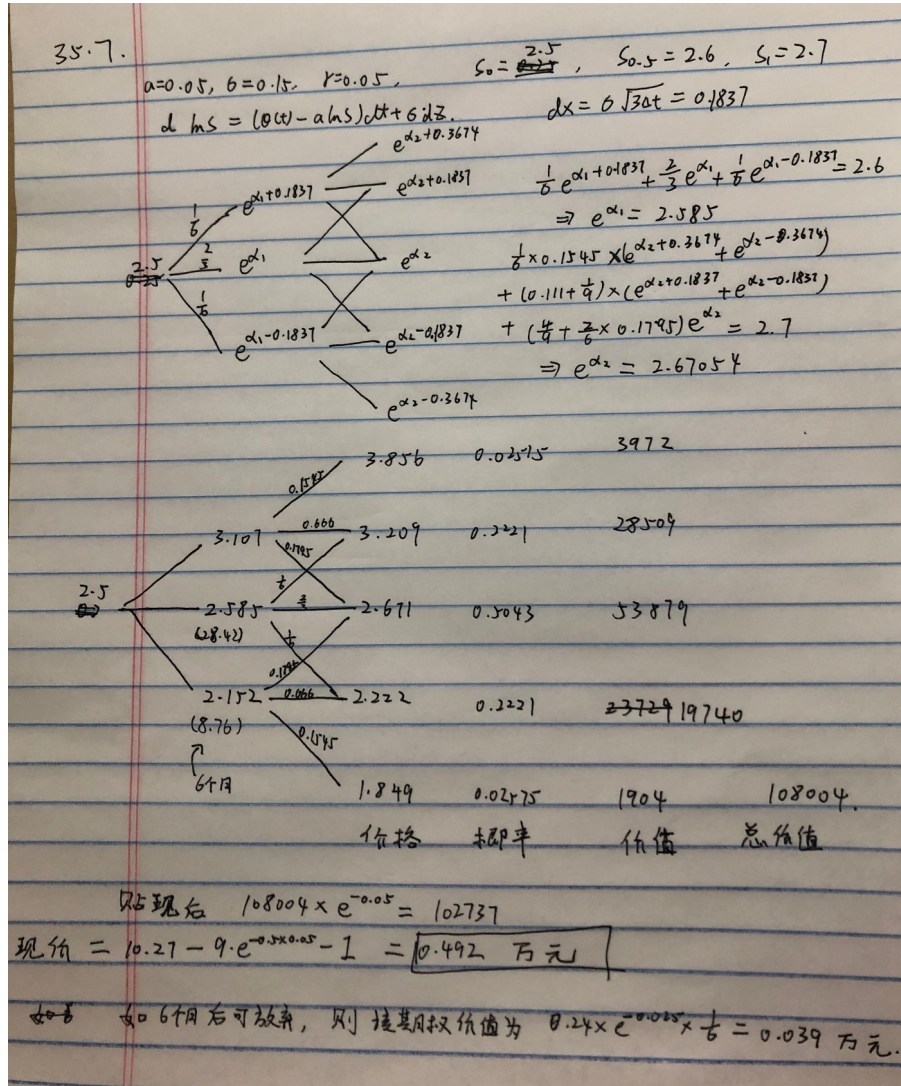 35.7.
a=0.05, σ=0.15, r=0.05, S₀ = 2.5, S₀.₅ = 2.6, S₁ = 2.7
d lnS = (θ(t) - a lnS)dt + σdz. dx = σ√3Δt = 0.1837
e^α₂+0.3674
1/6 e^α₁+0.1837 e^α₂+0.1837 1/6 e^α₁+0.1837 + 2/3 e^α₁ + 1/6 e^α₁-0.1837 = 2.6
⇒ e^α₁ = 2.585
2.5 2/3 e^α₁ e^α₂ 1/6 × 0.1545 × (e^α₂+0.3674 + e^α₂-0.3674)
+ (0.111 + 1/9) × (e^α₂+0.1837 + e^α₂-0.1837)
1/6 e^α₁-0.1837 e^α₂-0.1837 + (4/9 + 2/6 × 0.1795) e^α₂ = 2.7
⇒ e^α₂ = 2.67054
e^α₂-0.3674
0.1545 3.856 0.02575 3972
3.107 0.666 3.209 0.2221 28509
0.1795
1/6
2.5 2.585 2/3 2.671 0.5043 53879
(28.42) 1/6
0.1795
2.152 0.666 2.222 0.2221 23729 19740
(8.76) 0.1545
↑
6个月 1.849 0.02575 1904 108004.
价格 概率 价值 总价值
贴现后 108004 × e^-0.05 = 102737
现价 = 10.27 - 9·e^-0.5×0.05 - 1 = 0.492 万元
如6个月后可放弃, 则该期权价值为 0.24 × e^-0.025 × 1/6 = 0.039 万元.